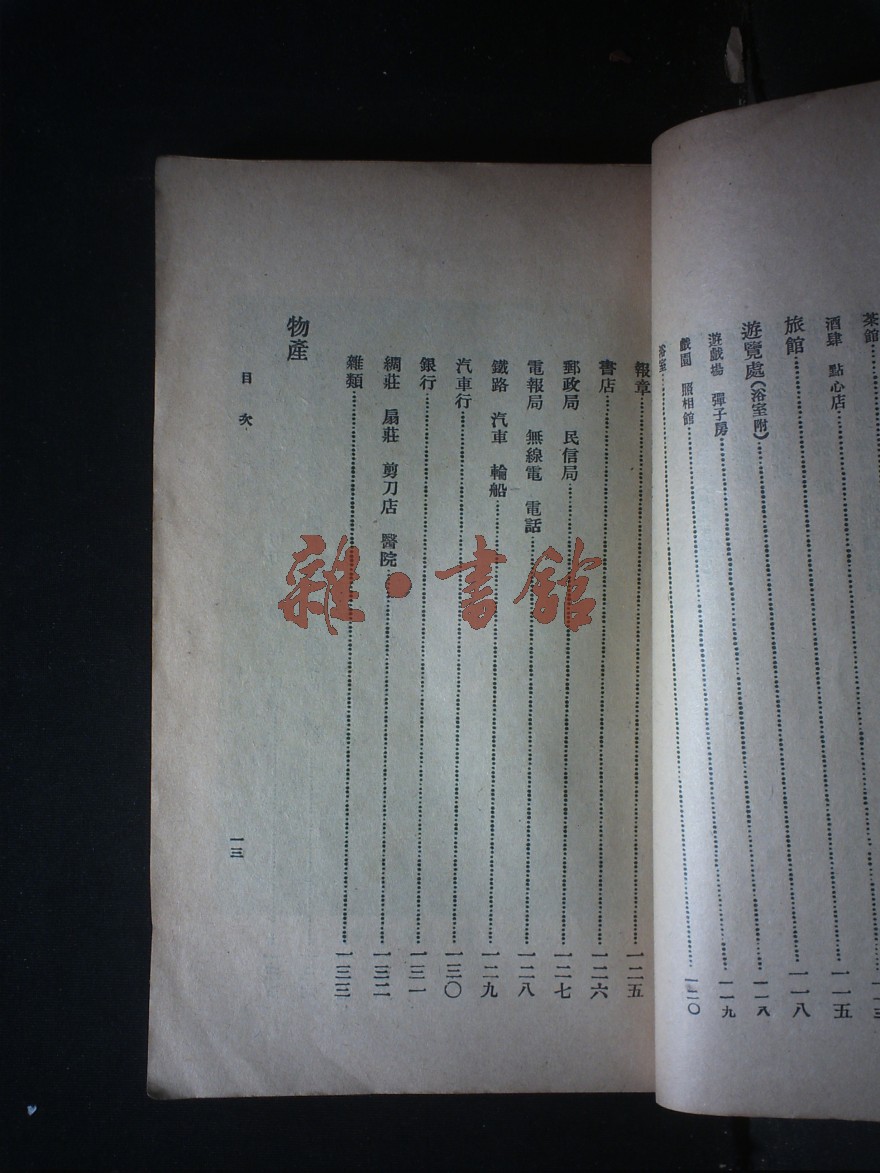 茶館
酒肆 點心店……一一五
旅館……一一八
遊覽處(浴室附)……一一八
遊戲場 彈子房……一一九
戲園 照相館……一二〇
浴室
報章……一二五
書店……一二六
郵政局 民信局……一二七
電報局 無線電 電話……一二八
鐵路 汽車 輪船……一二九
汽車行……一三〇
銀行……一三一
綢莊 扇莊 剪刀店 醫院……一三二
雜類……一三三
物產
目次
一三
雜·書館